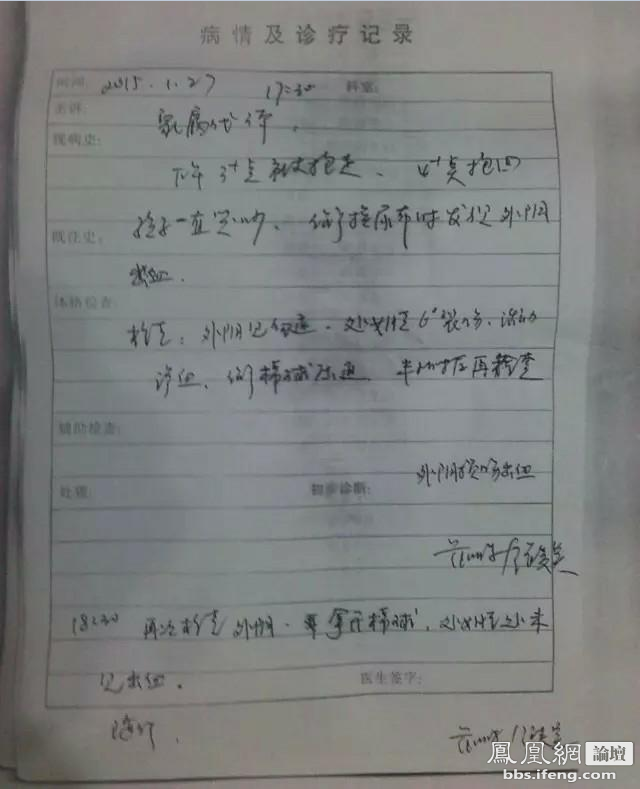 病情及诊疗记录
时间: 2015.1.27 17:30 科室:
主诉: 家属代诉,
现病史:
下午3点被抱走、4点抱回
孩子一直哭吵、给予换尿布时发现外阴
既往史:
出血.
体格检查:
检查: 外阴见血迹. 处女膜6°裂伤、活动
渗血、给予棉球压迫 半小时后再检查
辅助检查:
外阴损伤出血
处理: 初步诊断:
18:30 再次检查外阴. 拿开棉球,处女膜
见出血.
医生签字:
随诊.
鳳凰網 論壇
bbs.ifeng.com